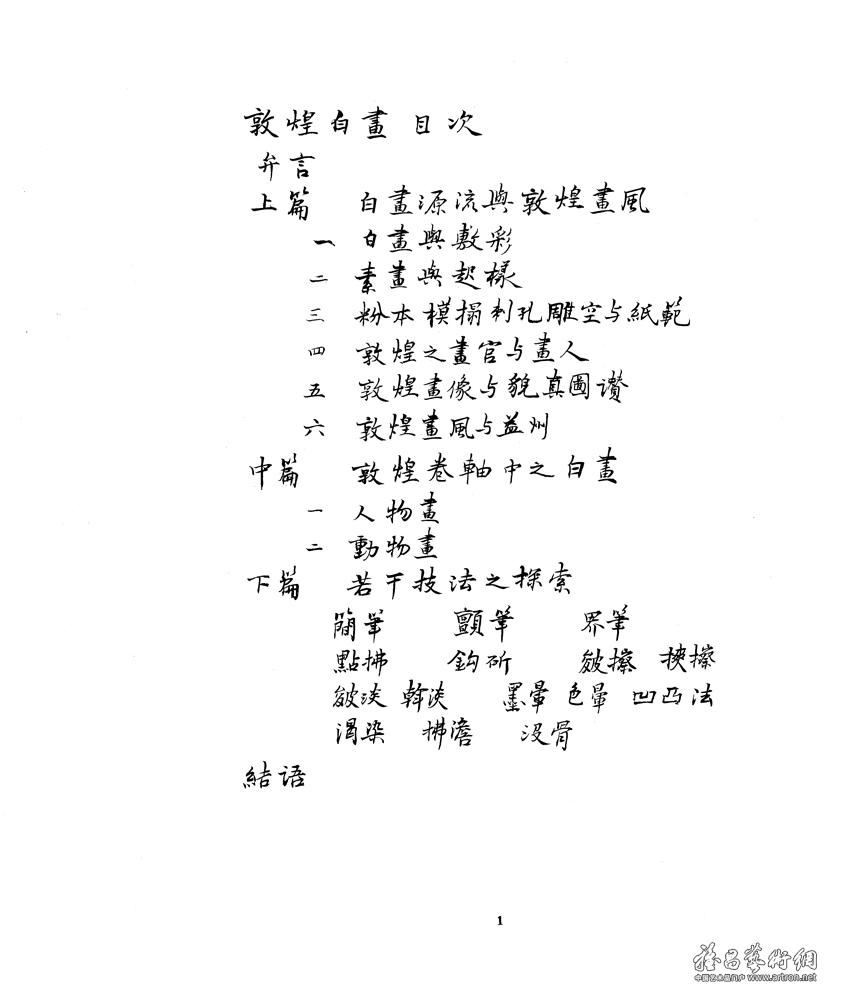 敦煌白畫 目次
弁言
上篇 白畫源流與敦煌畫風
一 白畫與敷彩
二 素畫與起樣
三 粉本模搨刺孔雕空与紙範
四 敦煌之畫官与畫人
五 敦煌畫像与貌真圖讚
六 敦煌畫風与益州
中篇 敦煌卷軸中之白畫
一 人物畫
二 動物畫
下篇 若干技法之探索
簡筆 顫筆 界筆
點拂 鈎斫 皴擦 挾擦
皴淡 斡淡 墨暈 色暈 凹凸法
渴染 拂澹 没骨
結语
1
雅昌藝術網
中国艺术品门户 www.artron.net